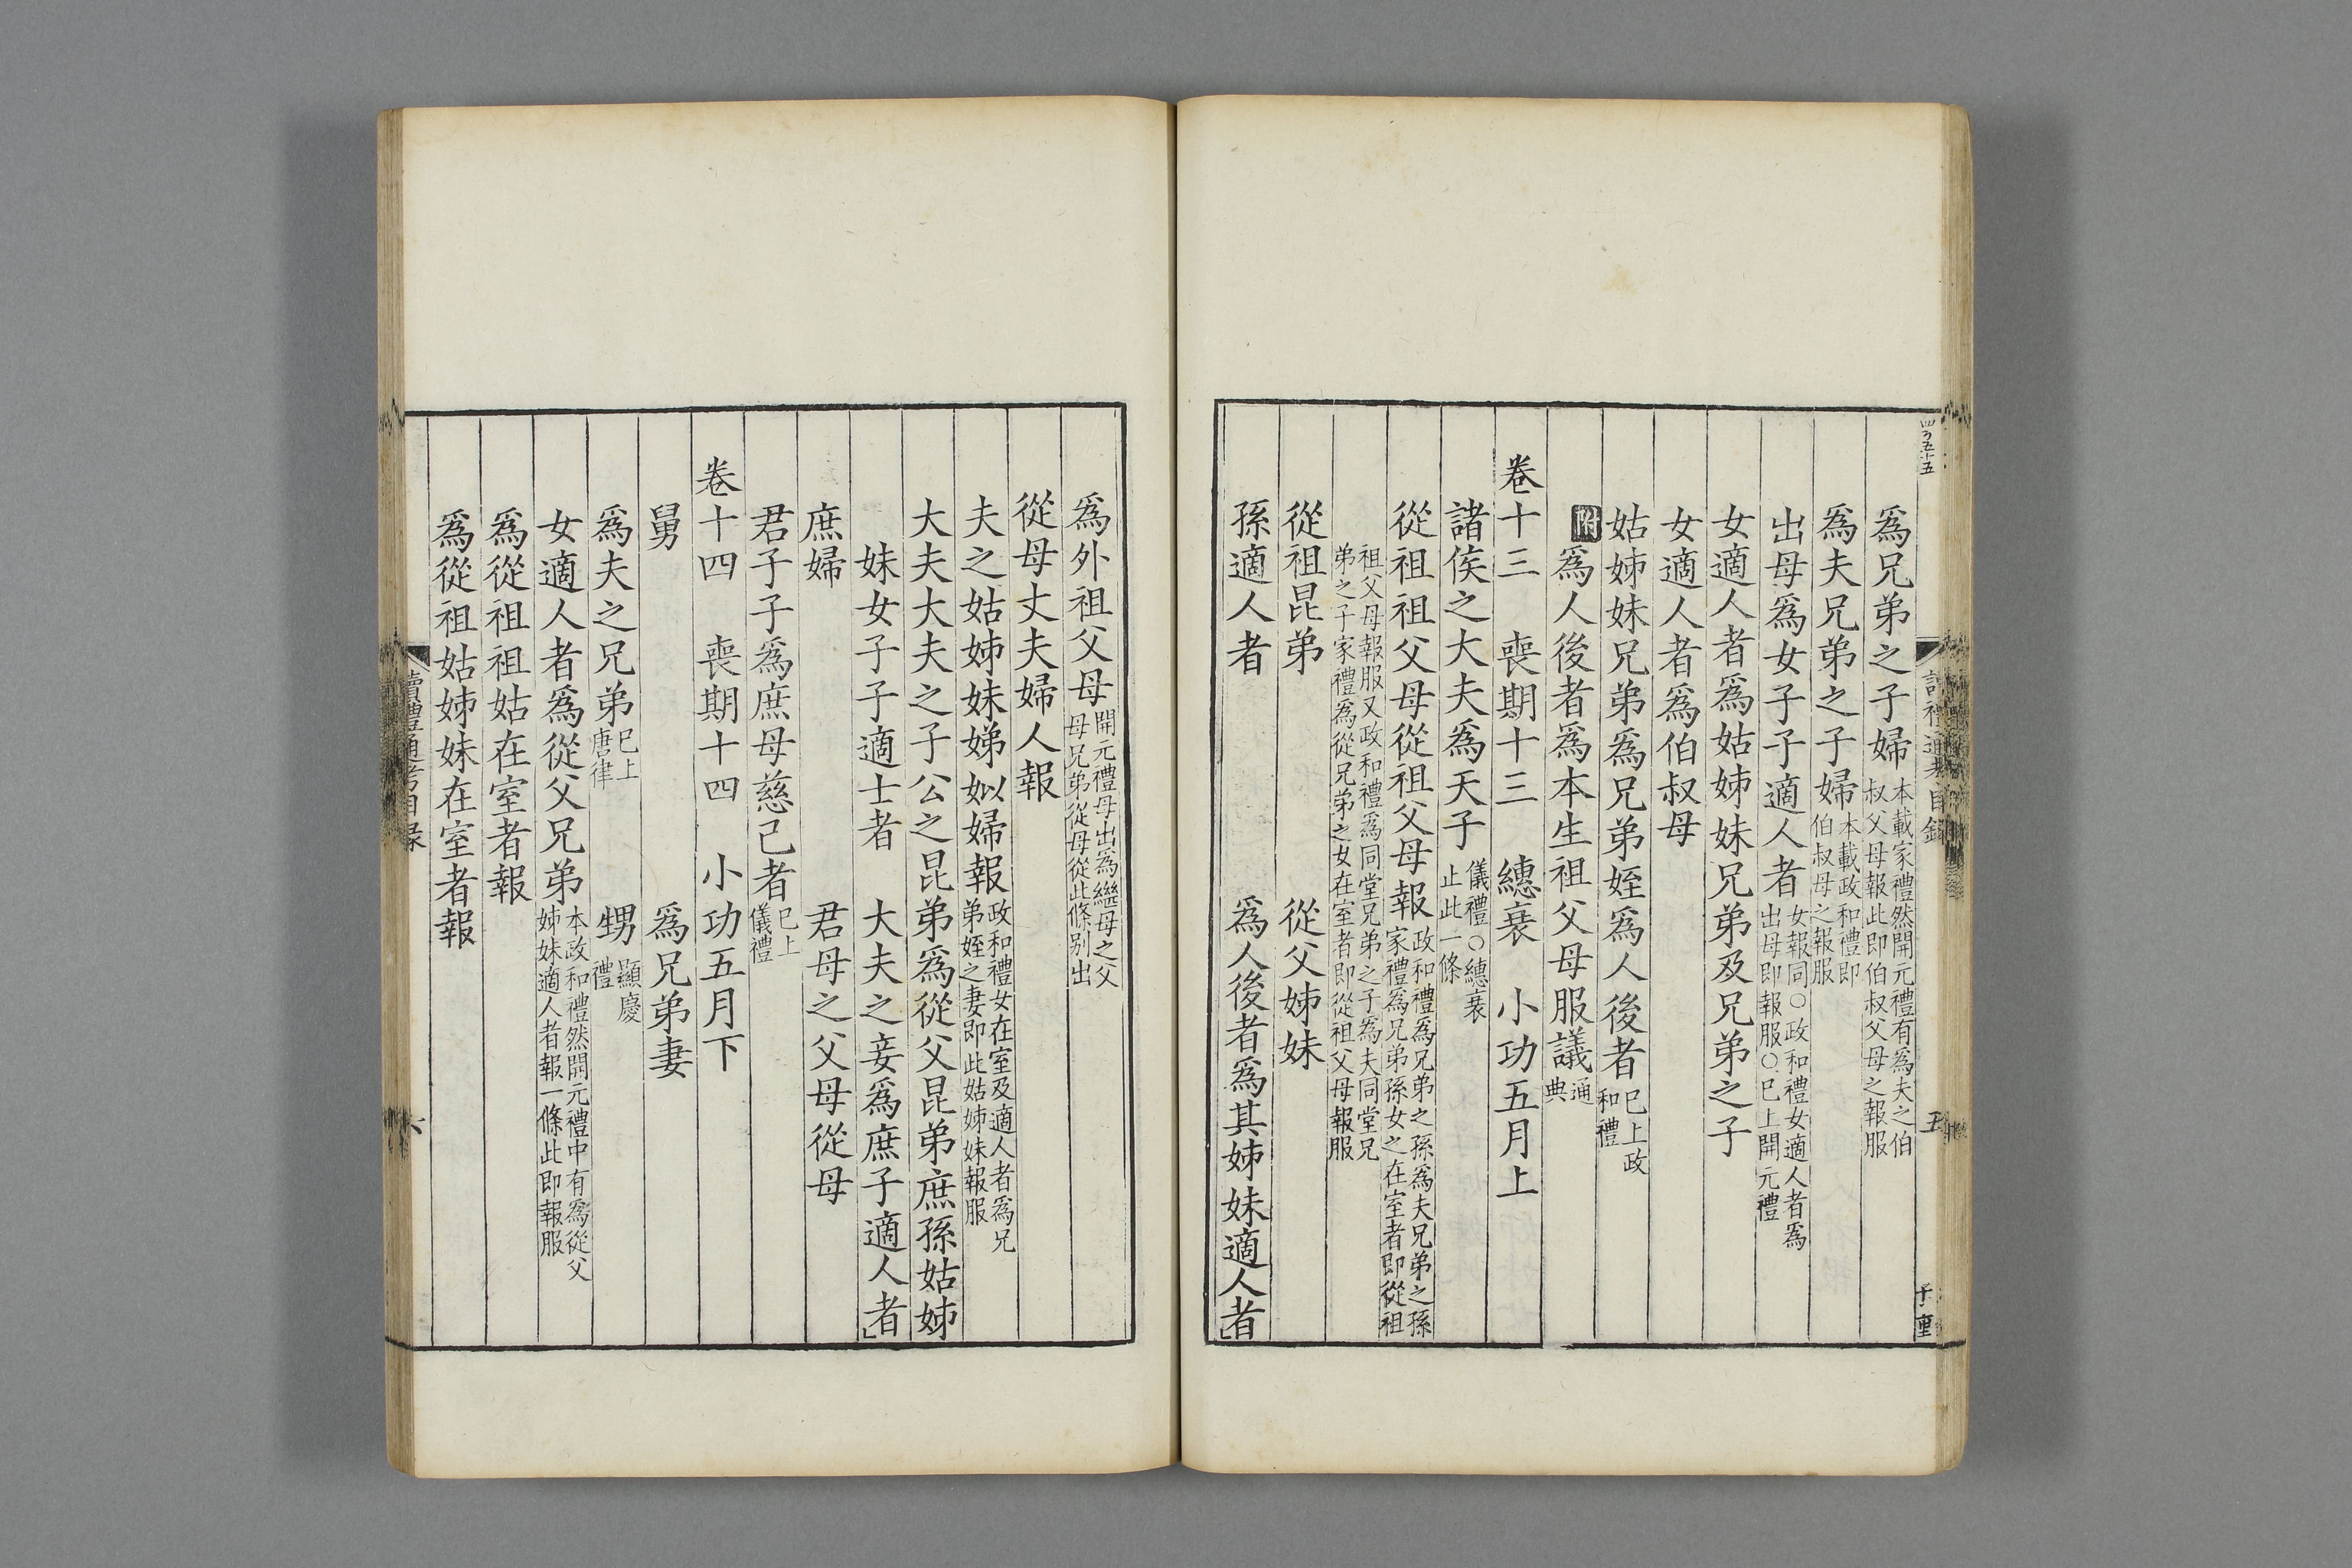 爲兄弟之子婦本載家禮然開元禮有爲夫之伯叔父母報此即伯叔父母之報服
爲夫兄弟之子婦本載政和禮即伯叔母之報服
出母爲女子子適人者女報同○政和禮女適人者爲出母即報服○已上開元禮
女適人者爲姑姊妹兄弟及兄弟之子
女適人者爲伯叔母
姑姊妹兄弟爲兄弟姪爲人後者已上政和禮
附爲人後者爲本生祖父母服議通典
卷十三 喪期十三 繐衰 小功五月上
諸侯之大夫爲天子儀禮○繐衰止此一條
從祖祖父母從祖父母報政和禮爲兄弟之孫爲夫兄弟之孫家禮爲兄弟孫女之在室者即從祖
祖父母報服又政和禮爲同堂兄弟之子爲夫同堂兄弟之子家禮爲從兄弟之女在室者即從祖父母報服
從祖昆弟 從父姊妹
孫適人者 爲人後者爲其姊妹適人者
爲外祖父母開元禮母出爲繼母之父母兄弟從母從此條别出
從母丈夫婦人報
夫之姑姊妹娣姒婦報政和禮女在室及適人者爲兄弟姪之妻即此姑姊妹報服
大夫大夫之子公之昆弟爲從父昆弟庶孫姑姊
妹女子子適士者 大夫之妾爲庶子適人者
庶婦 君母之父母從母
君子子爲庶母慈己者已上儀禮
卷十四 喪期十四 小功五月下
舅 爲兄弟妻
爲夫之兄弟已上唐律 甥顯慶禮
女適人者爲從父兄弟本政和禮然開元禮中有爲從父姊妹適人者報一條此即報服
爲從祖祖姑在室者報
爲從祖姑姊妹在室者報
讀禮通考目録
六